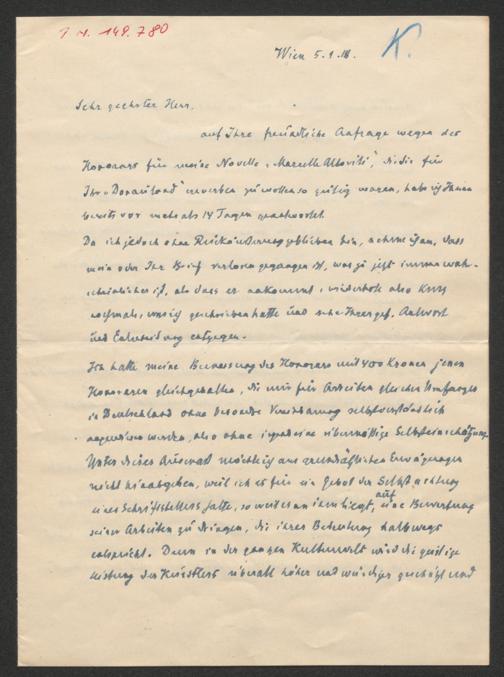 I. N. 149.780
K.
Wien 5.1.18.
Sehr geehrter Herr,
auf Ihre freundliche Anfrage wegen des
Honorars für meine Novelle „Marcella Altoviti", die Sie für
Ihr „Donauland" erwerben zu wollen so gütig waren, habe ich Ihnen
bereits vor mehr als 14 Tagen geantwortet.
Da ich jedoch ohne Rückäusserung geblieben bin, nehme ich an, dass
mein oder Ihr Brief verloren gegangen ist, was ja jetzt immer wahr-
scheinlicher ist, als dass er ankommt, wiederhole also kurz
nochmals, was ich geschrieben hatte und sehe Ihrer gef. Antwort
und Entscheidung entgegen.
Ich hatte meine Bemessung des Honorars mit 400 Kronen jenen
Honoraren gleichgehalten, die mir für Arbeiten gleichen Umfanges
in Deutschland ohne besondre Vereinbarung selbstverständlich
angewiesen werden, also ohne irgend eine übermässige Selbsteinschätzung.
Unter dieses Ausmass möchte ich aus grundsätzlichen Erwägungen
nicht hinabgehen, weil ich es für ein Gebot der Selbstachtung
eines Schriftstellers halte, so weit es an ihm liegt, auf eine Bewertung
seiner Arbeiten zu dringen, die ihrer Bedeutung halbwegs
entspricht. Denn in der ganzen Kulturwelt wird die geistige
Leistung des Künstlers überall höher und würdiger geschätzt und